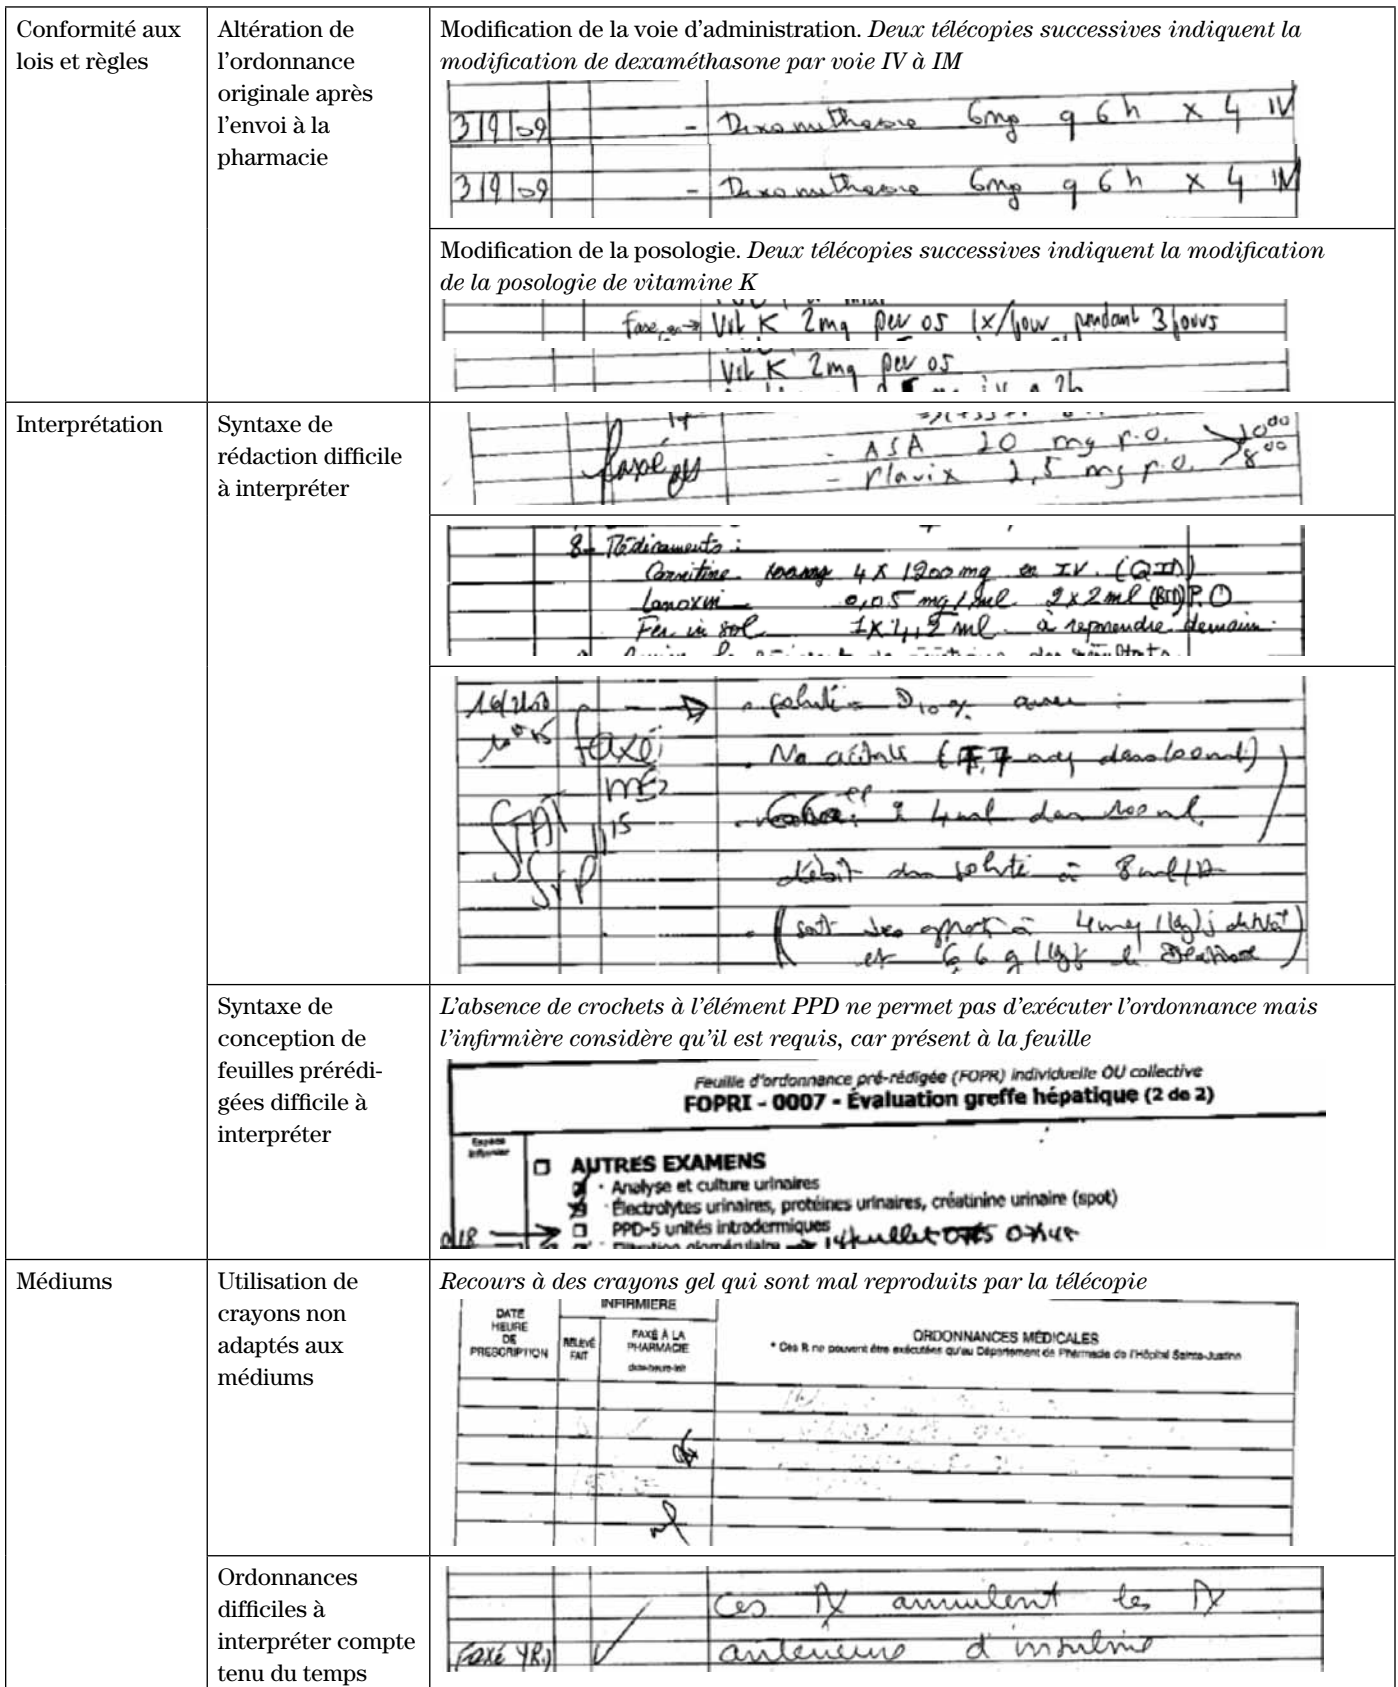 Conformité aux
lois et règles
Altération de
l'ordonnance
originale après
l'envoi à la
pharmacie
Modification de la voie d'administration. Deux télécopies successives indiquent la
modification de dexaméthasone par voie IV à IM
3/9/09 - Dexamethasone 6mg q 6h x 4 IV
3/9/09 - Dexamethasone 6mg q 6h x 4 IM
Modification de la posologie. Deux télécopies successives indiquent la modification
de la posologie de vitamine K
Vit K 2mg per os 1x/jour pendant 3 jours
Vit K 2mg per os
Interprétation
Syntaxe de
rédaction difficile
à interpréter
faxé - ASA 20 mg p.o.
- Plavix 2,5 mg p.o.
8- Médicaments :
Carnitine 4 x 1200 mg en IV. (QID)
Lanoxin 0,05 mg/ml 2x2ml (BID) P.O
Fer in sol 1x 1,2 ml à reprendre demain
faxé soluté = D10% avec :
débit du soluté à 8 ml/h
STAT
Syntaxe de
conception de
feuilles prérédi-
gées difficile à
interpréter
L'absence de crochets à l'élément PPD ne permet pas d'exécuter l'ordonnance mais
l'infirmière considère qu'il est requis, car présent à la feuille
Feuille d'ordonnance pré-rédigée (FOPR) individuelle OU collective
FOPRI - 0007 - Évaluation greffe hépatique (2 de 2)
Espace
infirmier
AUTRES EXAMENS
· Analyse et culture urinaires
· Électrolytes urinaires, protéines urinaires, créatinine urinaire (spot)
PPD-5 unités intradermiques
Filtration glomérulaire 14 juillet
Médiums
Utilisation de
crayons non
adaptés aux
médiums
Recours à des crayons gel qui sont mal reproduits par la télécopie
DATE
HEURE
DE
PRESCRIPTION
INFIRMIÈRE
RELEVÉ
FAIT
FAXÉ À LA
PHARMACIE
date-heure-init
ORDONNANCES MÉDICALES
* Ces R ne peuvent être exécutées qu'au Département de Pharmacie de l'Hôpital Sainte-Justine
Ordonnances
difficiles à
interpréter compte
tenu du temps
Ces Rx annulent les Rx
Faxé anterieure d'insuline